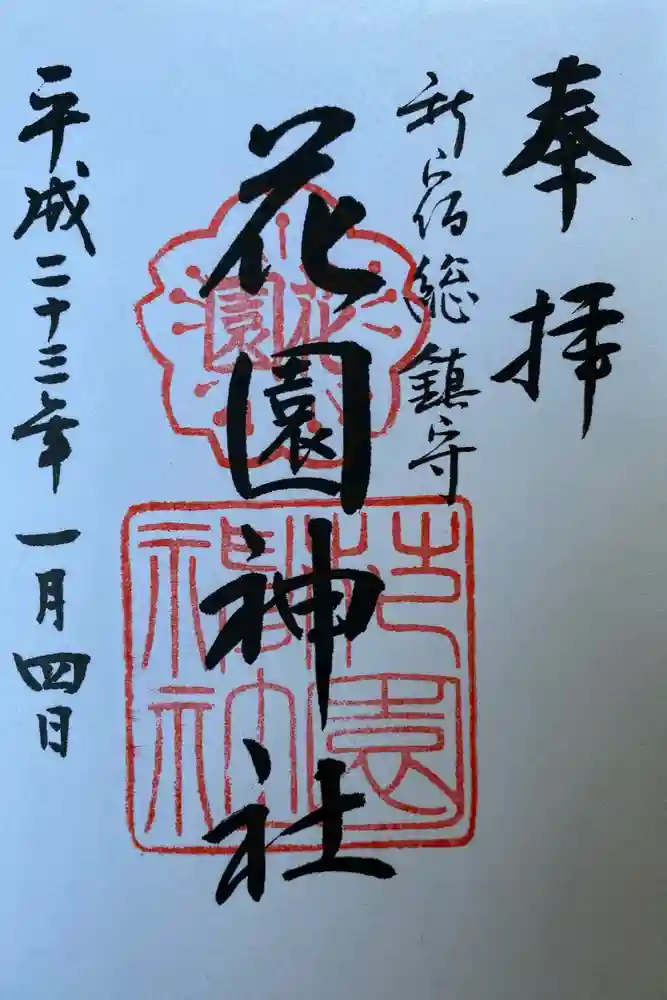 奉拝
新宿總鎮守
花園神社
花園
花園神社
平成二十三年一月四日